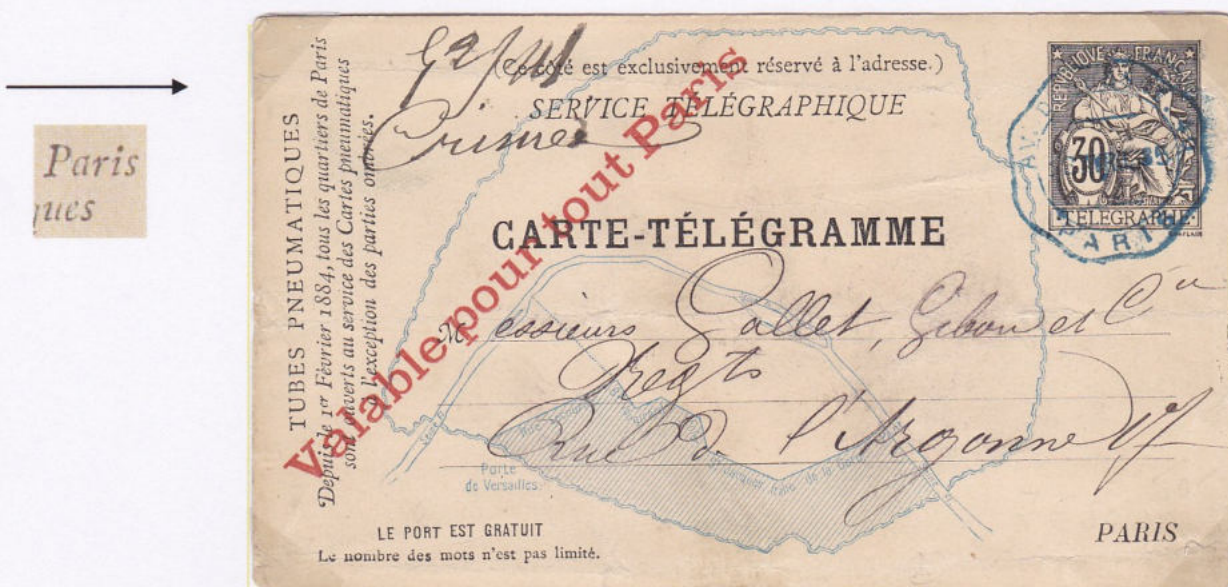 Paris
ques
TUBES PNEUMATIQUES
Depuis le 1er Février 1884, tous les quartiers de Paris
sont ouverts au service des Cartes pneumatiques
à l'exception des parties ombrées.
(Ce côté est exclusivement réservé à l'adresse.)
SERVICE TÉLÉGRAPHIQUE
Crimée
CARTE-TÉLÉGRAMME
Valable pour tout Paris
REPUBLIQUE FRANCAISE
30
TELEGRAPHE
PARIS
Messieurs Gallet, Gibou et Cie
Negts
Rue de l'Argonne
Porte
de Versailles
LE PORT EST GRATUIT
Le nombre des mots n'est pas limité.
PARIS